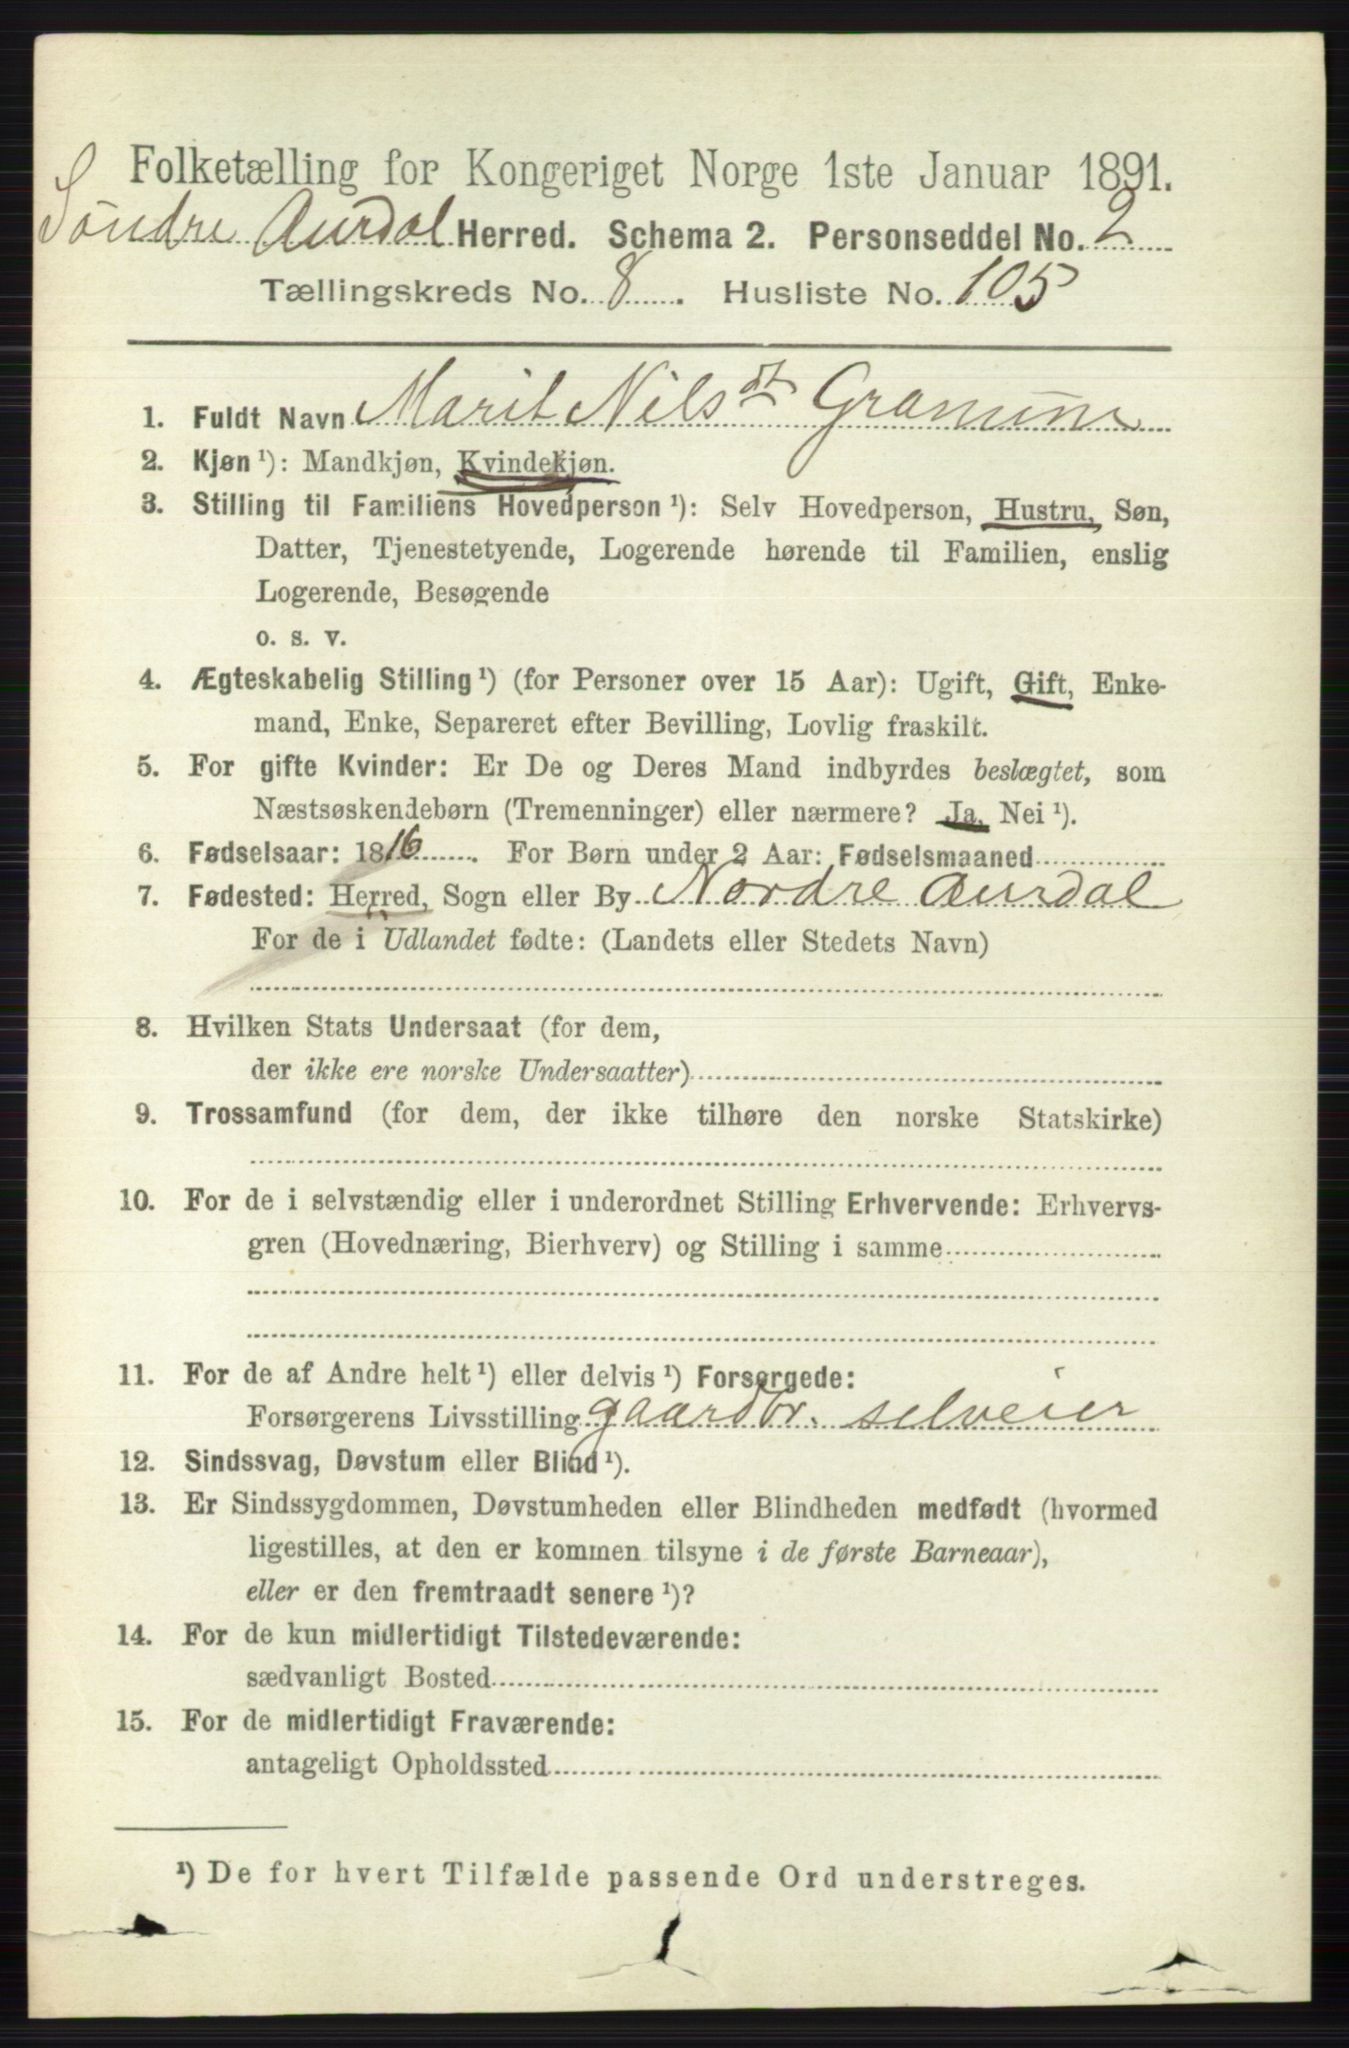 Folketælling for Kongeriget Norge 1ste Januar 1891.
Søndre Aurdal Herred. Schema 2. Personseddel No. 2
Tællingskreds No. 8. Husliste No. 105
1. Fuldt Navn Marit Nilsdt
2. Kjøn ¹): Mandkjøn, Kvindekjøn.
3. Stilling til Familiens Hovedperson ¹): Selv Hovedperson, Hustru, Søn,
Datter, Tjenestetyende, Logerende hørende til Familien, enslig
Logerende, Besøgende
o. s. v.
4. Ægteskabelig Stilling ¹) (for Personer over 15 Aar): Ugift, Gift, Enke-
mand, Enke, Separeret efter Bevilling, Lovlig fraskilt.
5. For gifte Kvinder: Er De og Deres Mand indbyrdes beslægtet, som
Næstsøskendebørn (Tremenninger) eller nærmere? Ja, Nei ¹).
6. Fødselsaar: 1816. For Børn under 2 Aar: Fødselsmaaned
7. Fødested: Herred, Sogn eller By Nordre Aurdal
For de i Udlandet fødte: (Landets eller Stedets Navn)
8. Hvilken Stats Undersaat (for dem,
der ikke ere norske Undersaatter)
9. Trossamfund (for dem, der ikke tilhøre den norske Statskirke)
10. For de i selvstændig eller i underordnet Stilling Erhvervende: Erhvervs-
gren (Hovednæring, Bierhverv) og Stilling i samme
11. For de af Andre helt ¹) eller delvis ¹) Forsørgede:
Forsørgerens Livsstilling gaardbr. selveier
12. Sindssvag, Døvstum eller Blind ¹).
13. Er Sindssygdommen, Døvstumheden eller Blindheden medfødt (hvormed
ligestilles, at den er kommen tilsyne i de første Barneaar),
eller er den fremtraadt senere ¹)?
14. For de kun midlertidigt Tilstedeværende:
sædvanligt Bosted
15. For de midlertidigt Fraværende:
antageligt Opholdssted
¹) De for hvert Tilfælde passende Ord understreges.